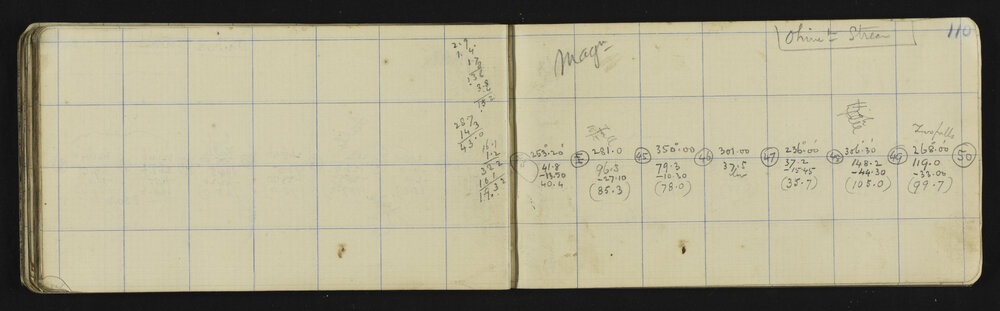 2.9
1.4
1.7
3.8
28.7
14.3
43.0
16.1
32.2
16.1
Magn
Stream
110
253.20'
41.8
-13.50
40.4
281.0
96.3
-27.10
(85.3)
45
350°00
79.3
-10.30
(78.0)
46
301.00
37.5
47
236°00'
37.2
-15.45
(35.7)
306.30'
148.2
-44.30
(105.0)
49
Two falls
268.00
119.0
-33.00
(99.7)
50